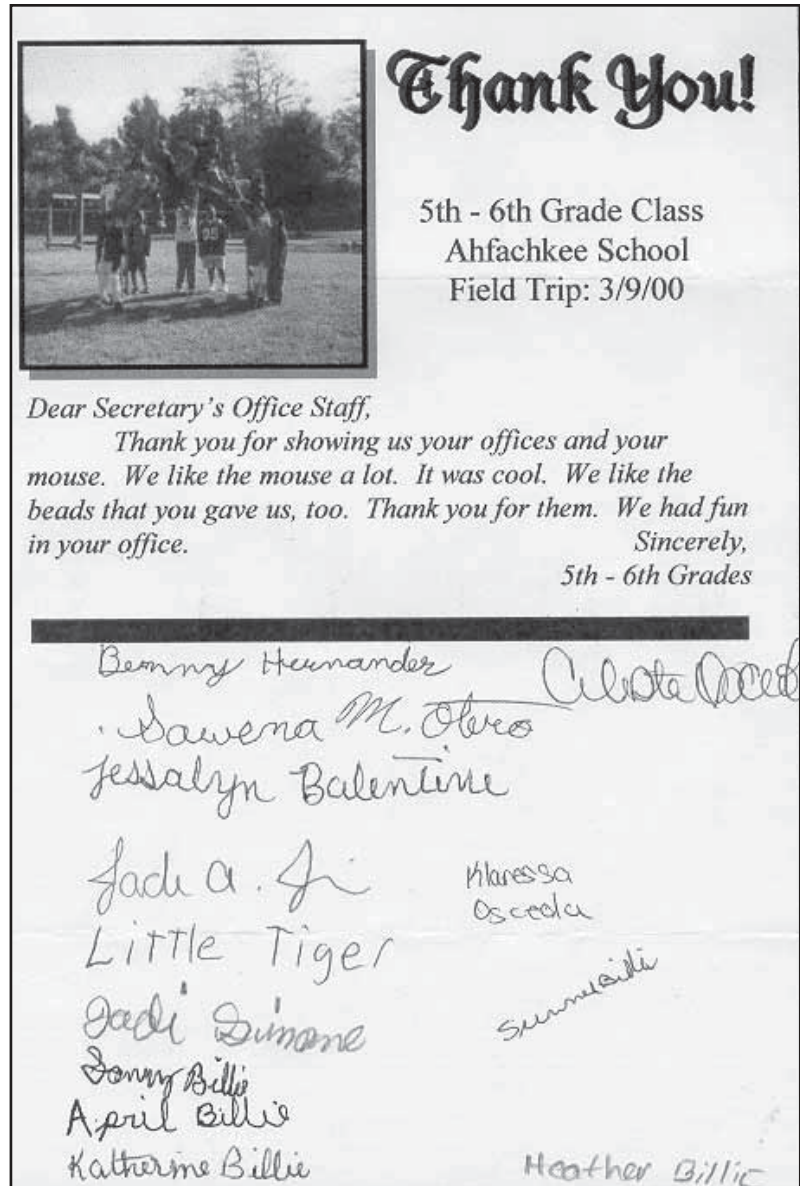 Thank You!
5th - 6th Grade Class
Ahfachkee School
Field Trip: 3/9/00
Dear Secretary's Office Staff,
Thank you for showing us your offices and your
mouse. We like the mouse a lot. It was cool. We like the
beads that you gave us, too. Thank you for them. We had fun
in your office.
Sincerely,
5th - 6th Grades
Hernandez
Sawena M. Otero
Jessalyn Balentine
Jade A.
Klaressa
Osceola
Little Tiger
Jadi Simone
Sonny Billie
April Billie
Katherine Billie
Heather Billie